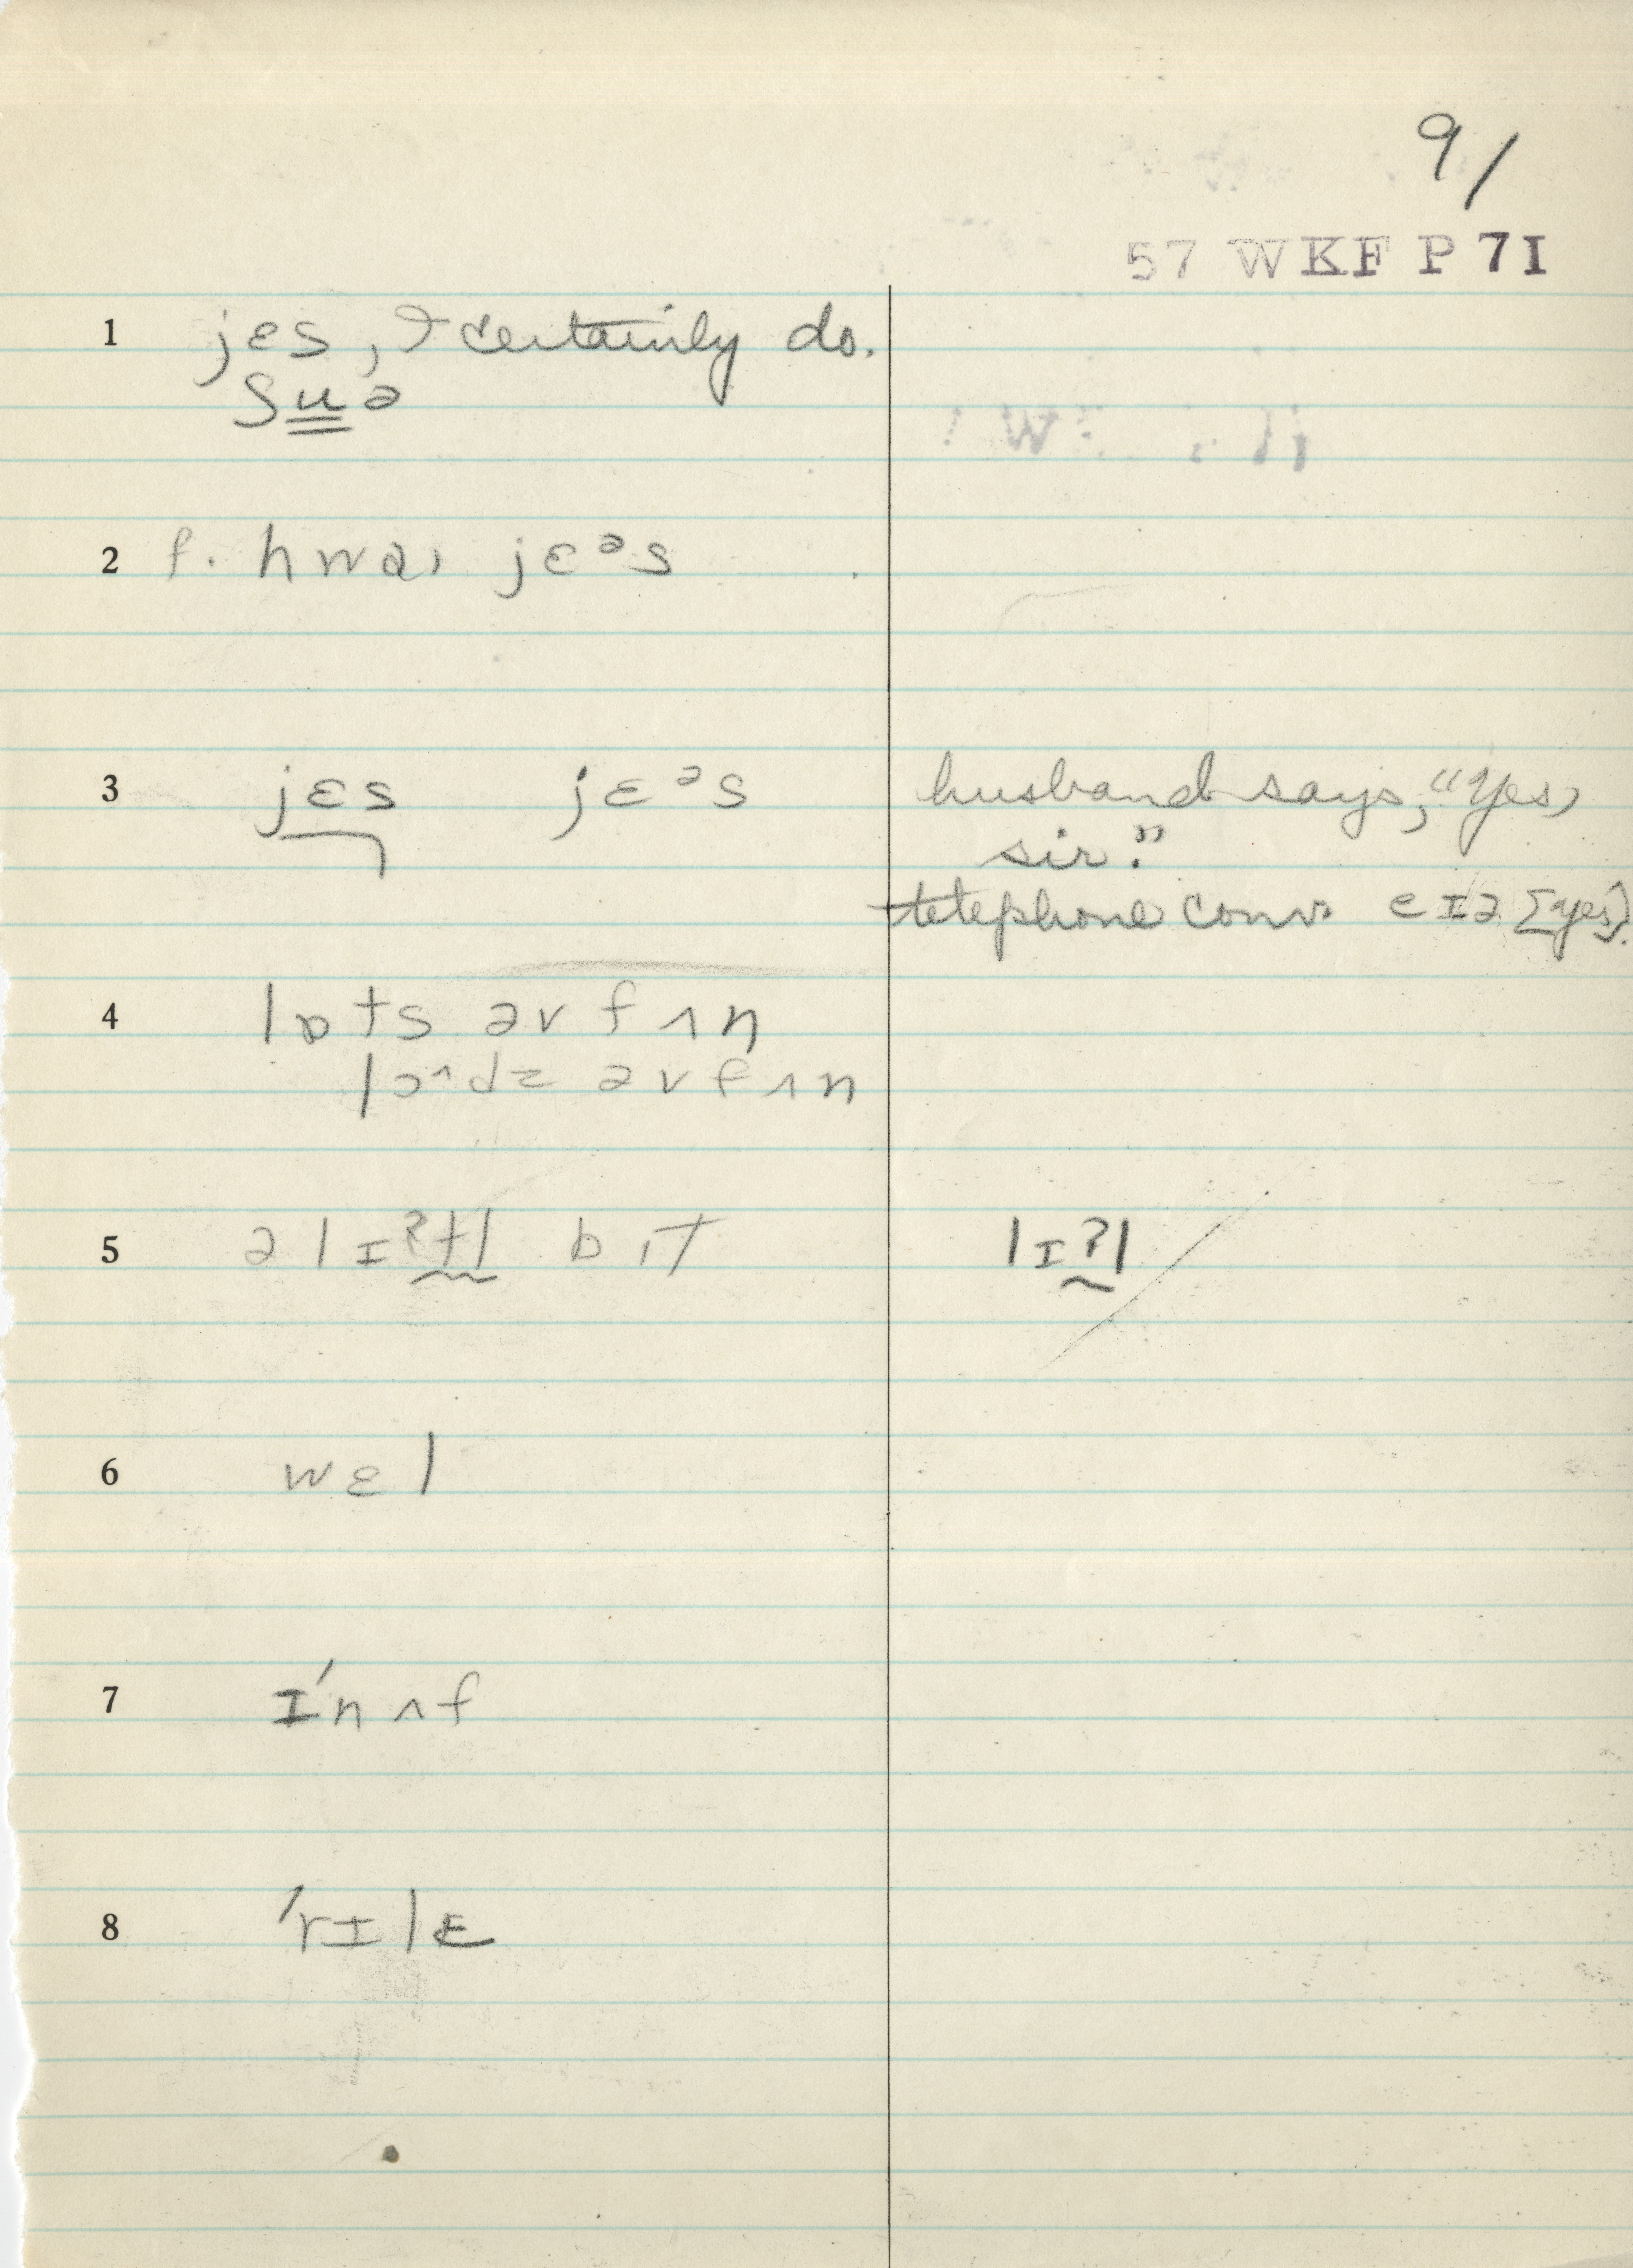 91
57 WKF P 71
1 jɛs, I certainly do.
ʃuə
2 f. hwaɪ jɛᵊs
3 jɛs jɛᵊs husband says, "Yes,
sir."
telephone conv. eɪə [yes].
4 lɒts əv fʌn
lɔ^dz əv fʌn
5 ə lɪʔtl bɪt lɪʔl
6 wɛl
7 ɪ'nʌf
8 'rɪlɛ